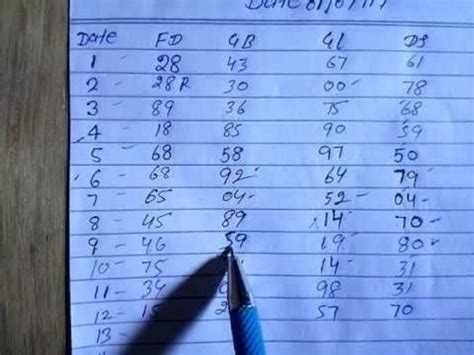 Date
Date FD GB GL DS
1 - 28 43 67 61
2 - 28R 30 00- 78
3 - 89 36 75 68
4 - 18 85 90 39
5 - 68 58 97 50
6 - 68 92- 64 79
7 - 65 04- 52- 04-
8 - 45 89 14 70-
9 - 46 59 19 80-
10 - 75 14- 31
11 - 34 98 31
12 - 57 70
13 -